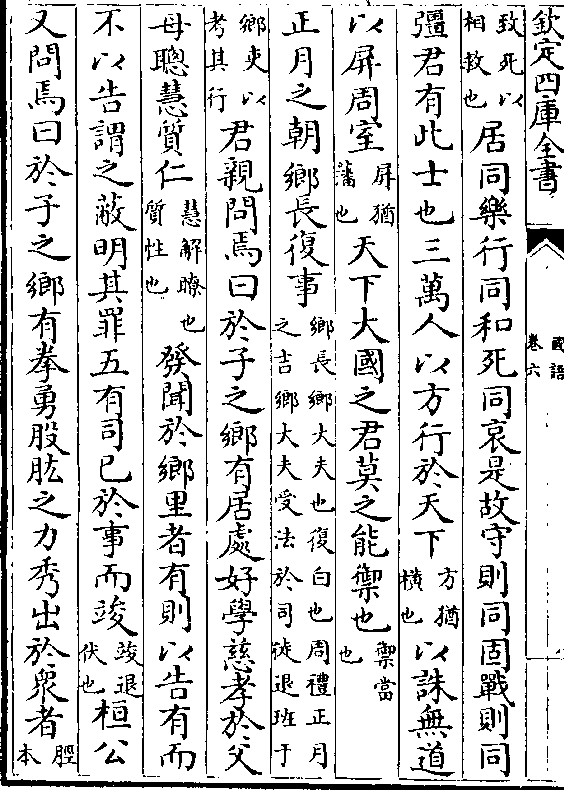 欽定四庫全書
國語
卷六
致死以相救也居同樂行同和死同哀是故守則同固戰則同
彊君有此士也三萬人以方行於天下方猶橫也以誅無道
以屏周室屏猶藩也天下大國之君莫之能禦也禦當也
正月之朝鄉長復事鄉長鄉大夫也復白也周禮正月之吉鄉大夫受法於司徒退班于
鄉吏以考其行君親問焉曰於子之鄉有居處好學慈孝於父
母聰慧質仁慧解瞭也質性也發聞於鄉里者有則以告有而
不以告謂之蔽明其罪五有司已於事而竣竣退伏也桓公
又問焉曰於子之鄉有拳勇股肱之力秀出於衆者脛本